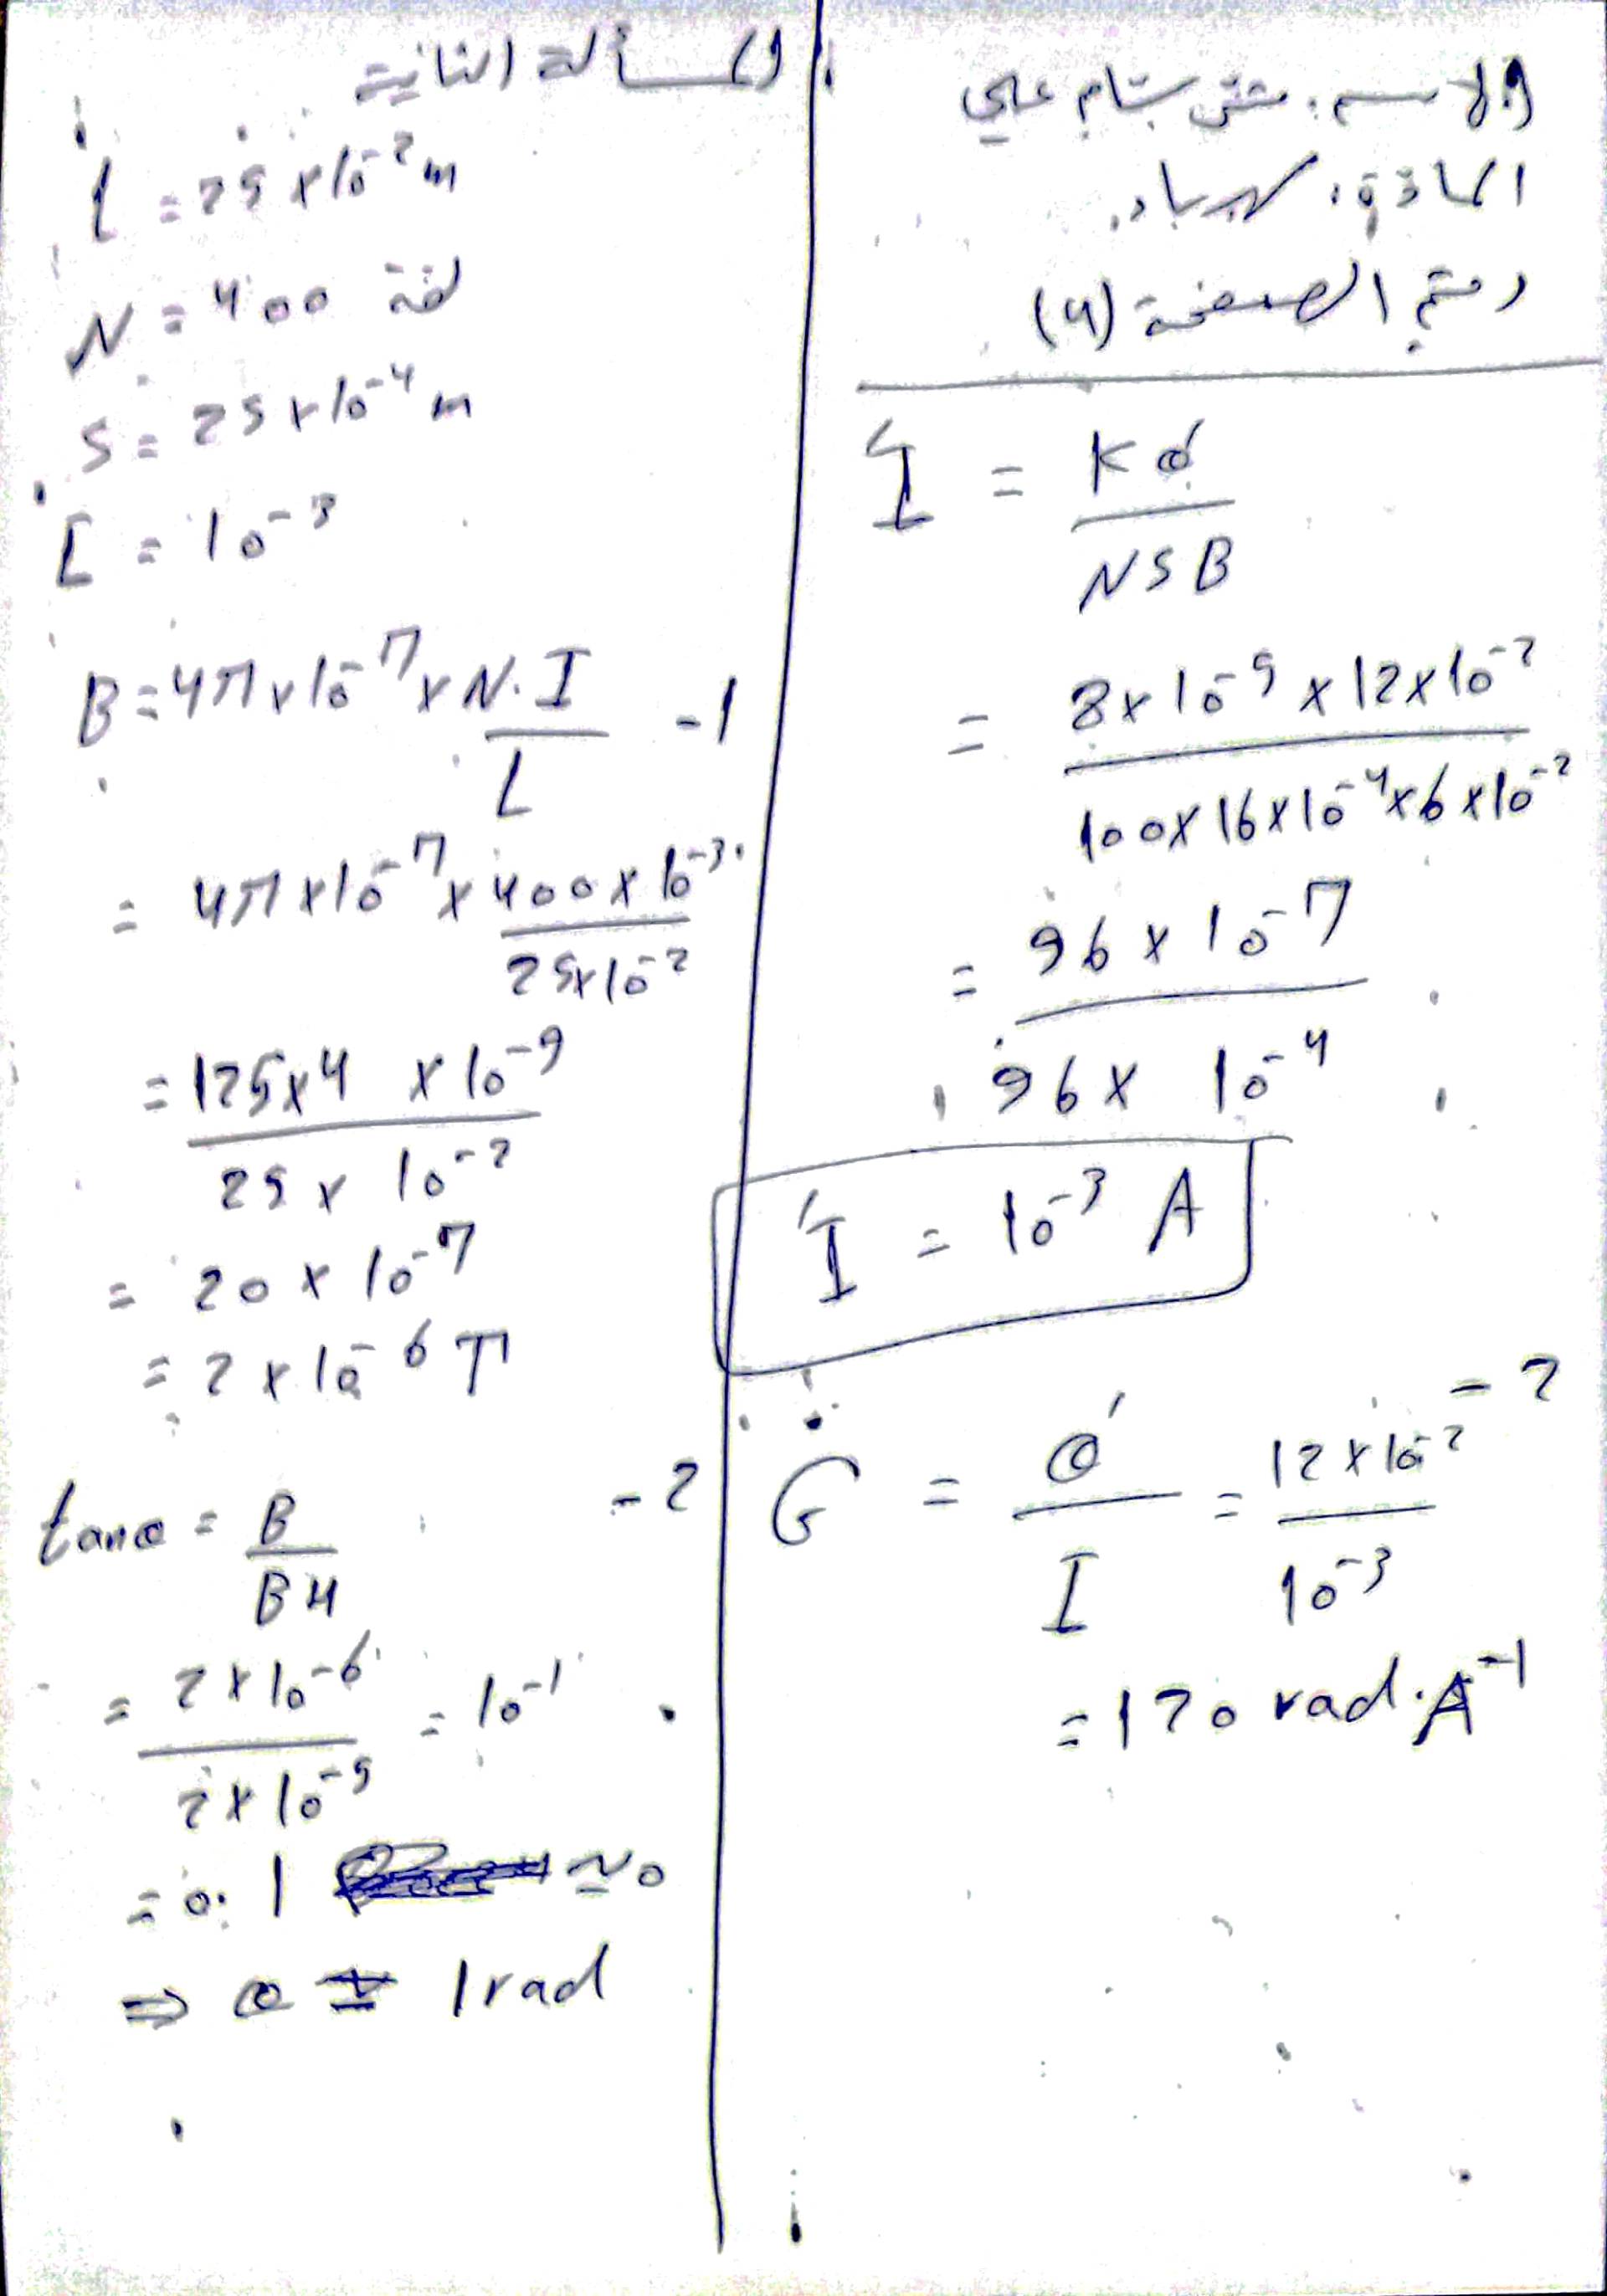 الاسم: مثنى بسام علي
المادة: كهرباء.
رقم الصفحة (4)
I' = Kθ' / NSB
= 8×10⁻⁵ × 12×10⁻² / 100×16×10⁻⁴×6×10⁻²
= 96 × 10⁻⁷ / 96 × 10⁻⁴
I' = 10⁻³ A
G = θ' / I = 12×10⁻² / 10⁻³ -2
= 120 rad.A⁻¹
المسألة الثانية:
L = 25×10⁻² m
N = 400 لفة
S = 25×10⁻⁴ m
I = 10⁻³
B = 4π×10⁻⁷× N.I / L -1
= 4π×10⁻⁷× 400×10⁻³ / 25×10⁻²
= 125×4 ×10⁻⁹ / 25 × 10⁻²
= 20 × 10⁻⁷
= 2 × 10⁻⁶ T
tanθ = B / BH -2
= 2×10⁻⁶ / 2×10⁻⁵ = 10⁻¹
= 0.1 ≃ 0
⇒ θ ≃ 1 rad